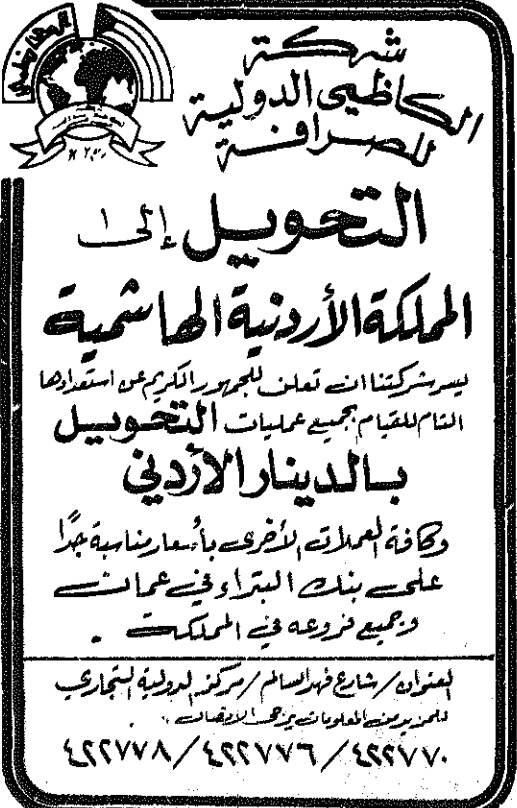 شركة
الكاظمي الدولية
للصرافة
التحويل إلى
المملكة الأردنية الهاشمية
يسر شركتنا ان تعلن للجمهور الكريم عن استعدادها
التام للقيام بجميع عمليات التحويل
بالدينار الأردني
وكافة العملات الأخرى بأسعار مناسبة جدًا
على بنك البتراء في عمان
وجميع فروعه في المملكة .
العنوان / شارع فهد السالم / مركز الدولية التجاري
للمزيد من المعلومات يرجى الاتصال :
٤٢٢٧٧٠ / ٤٢٢٧٧٦ / ٤٢٢٧٧٨